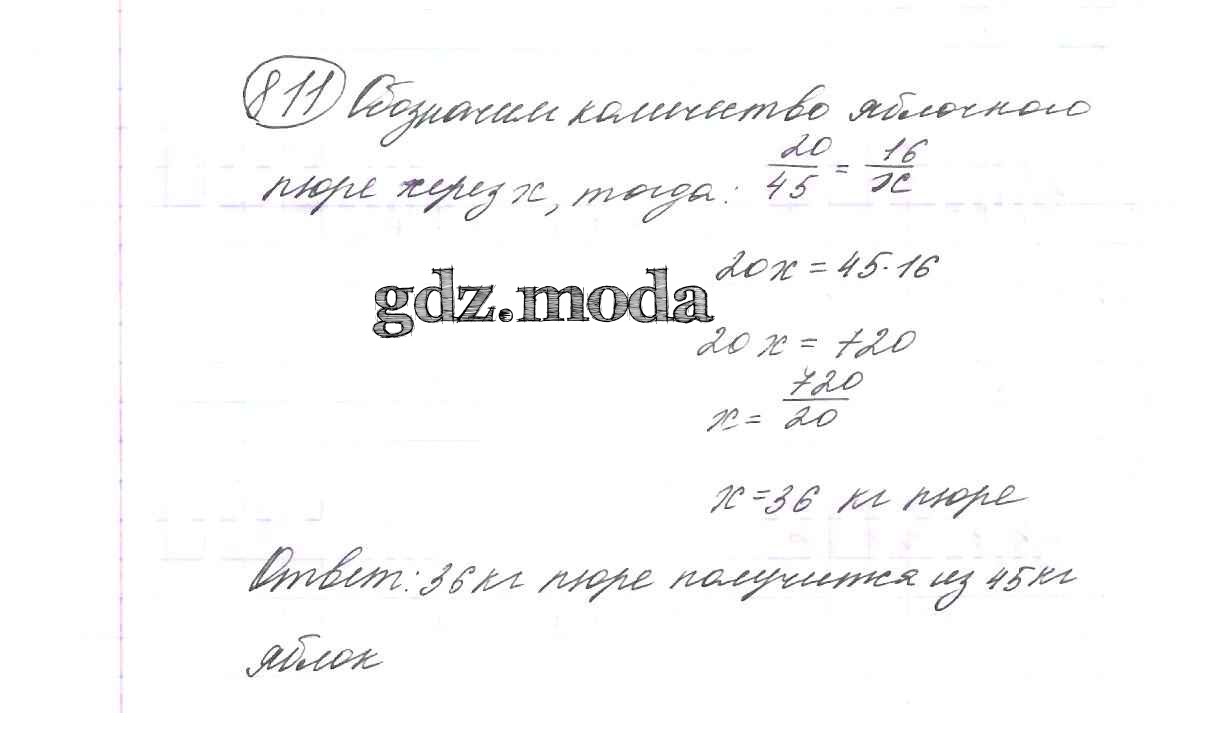 811 Обозначим количество яблочного
пюре через x, тогда: 20/45 = 16/x
20x = 45·16
gdz.moda
20x = 720
x = 720/20
x = 36 кг пюре
Ответ: 36 кг пюре получится из 45 кг
яблок